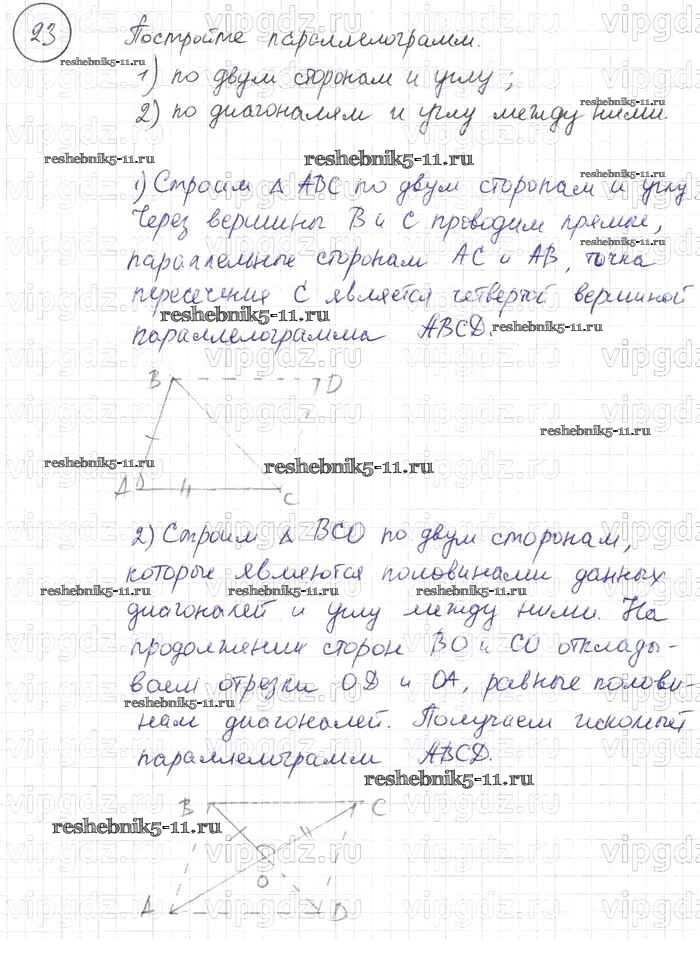 23 Постройте параллелограмм.
1) по двум сторонам и углу;
2) по диагоналям и углу между ними.
1) Строим Δ ABC по двум сторонам и углу
Через вершины B и C проводим прямые,
параллельные сторонам AC и AB, точка
пересечения C является четвертой вершиной
параллелограмма ABCD.
B D
A C
2) Строим Δ BCO по двум сторонам,
которые являются половинами данных
диагоналей и углу между ними. На
продолжении сторон BO и CO отклады-
ваем отрезки OD и OA, равные полови-
нам диагоналей. Получаем искомый
параллелограмм ABCD.
B C
O
A D